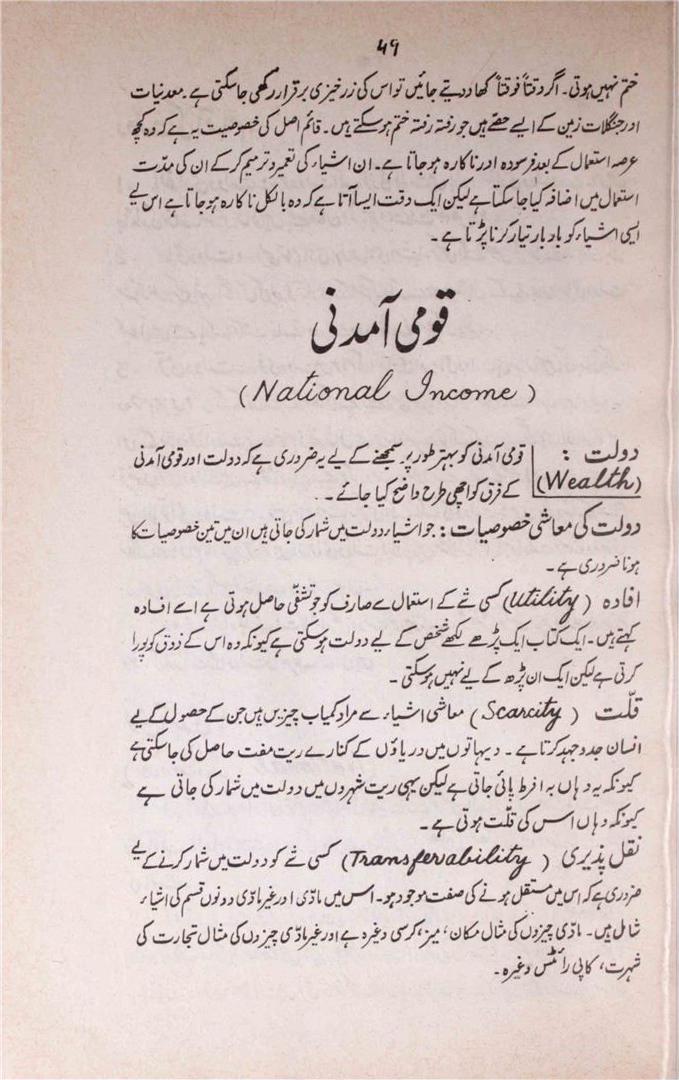 ۴۹
ختم نہیں ہوتی۔ اگر وقتاً فوقتاً کھاد دیتے جائیں تو اس کی زرخیزی برقرار رکھی جاسکتی ہے۔ معدنیات
اور جنگلات زمین کے ایسے حصّے ہیں جو رفتہ رفتہ ختم ہوسکتے ہیں۔ قائم اصل کی خصوصیت یہ ہے کہ وہ کچھ
عرصہ استعمال کے بعد فرسودہ اور ناکارہ ہوجاتا ہے۔ ان اشیاء کی تعمیر و ترمیم کرکے ان کی مدّت
استعمال میں اضافہ کیا جاسکتا ہے لیکن ایک وقت ایسا آتا ہے کہ وہ بالکل ناکارہ ہوجاتا ہے اس لیے
ایسی اشیاء کو باربار تیار کرنا پڑتا ہے۔
قومی آمدنی
(National Income)
دولت : قومی آمدنی کو بہتر طور پر سمجھنے کے لیے یہ ضروری ہے کہ دولت اور قومی آمدنی
(Wealth) کے فرق کو اچھی طرح واضح کیا جائے۔
دولت کی معاشی خصوصیات : جو اشیاء دولت میں شمار کی جاتی ہیں ان میں تین خصوصیات کا
ہونا ضروری ہے۔
افادہ (Utility) کسی شے کے استعمال سے صارف کو جو تشفّی حاصل ہوتی ہے اسے افادہ
کہتے ہیں۔ ایک کتاب ایک پڑھے لکھے شخص کے لیے دولت ہوسکتی ہے کیونکہ وہ اس کے ذوق کو پورا
کرتی ہے لیکن ایک ان پڑھ کے لیے نہیں ہوسکتی۔
قلّت (Scarcity) معاشی اشیاء سے مراد کمیاب چیزیں ہیں جن کے حصول کے لیے
انسان جدوجہد کرتا ہے۔ دیہاتوں میں دریاؤں کے کنارے ریت مفت حاصل کی جاسکتی ہے
کیونکہ یہ وہاں بہ افرط پائی جاتی ہے لیکن یہی ریت شہروں میں دولت میں شمار کی جاتی ہے
کیونکہ وہاں اس کی قلّت ہوتی ہے۔
نقل پذیری (Transferability) کسی شے کو دولت میں شمار کرنے کے لیے
ضروری ہے کہ اس میں مستقل ہونے کی صفت موجود ہو۔ اس میں مادّی اور غیر مادّی دونوں قسم کی اشیاء
شامل ہیں۔ مادّی چیزوں کی مثال مکان، میز، کرسی وغیرہ ہے اور غیر مادّی چیزوں کی مثال تجارت کی
شہرت، کاپی رائٹس وغیرہ۔